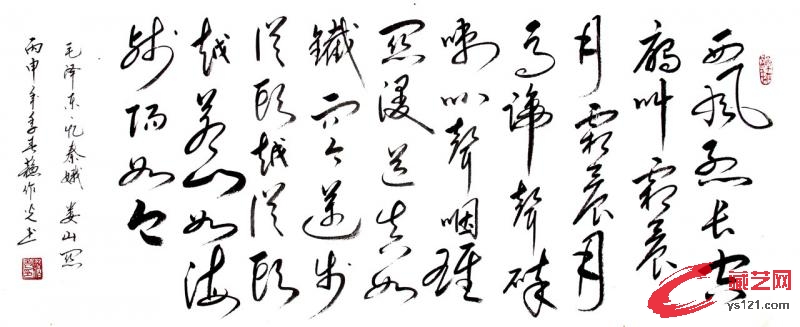 西风烈长空
雁叫霜晨
月霜晨月
马蹄聲碎
喇叭聲咽雄
関漫道真如
鐵而今迈步
从头越从头
越苍山如海
残阳如血
毛泽东忆秦娥 娄山関
丙申年季春作光书
藏艺网
ys121.com